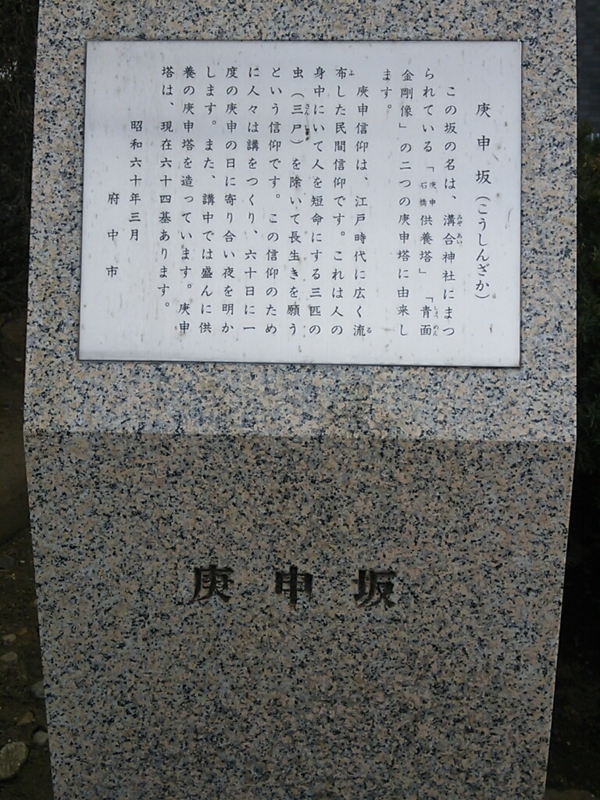 庚申坂(こうしんざか)
この坂の名は、溝合神社にまつ
られている「庚申石橋供養塔」「青面
金剛像」の二つの庚申塔に由来し
ます。
庚申信仰は、江戸時代に広く流
布した民間信仰です。これは人の
身中にいて人を短命にする三匹の
虫(三尸)を除いて長生きを願う
という信仰です。この信仰のため
に人々は講をつくり、六十日に一
度の庚申の日に寄り合い夜を明か
します。また、講中では盛んに供
養の庚申塔を造っています。庚申
塔は、現在六十四基あります。
昭和六十年三月
府中市
庚申坂